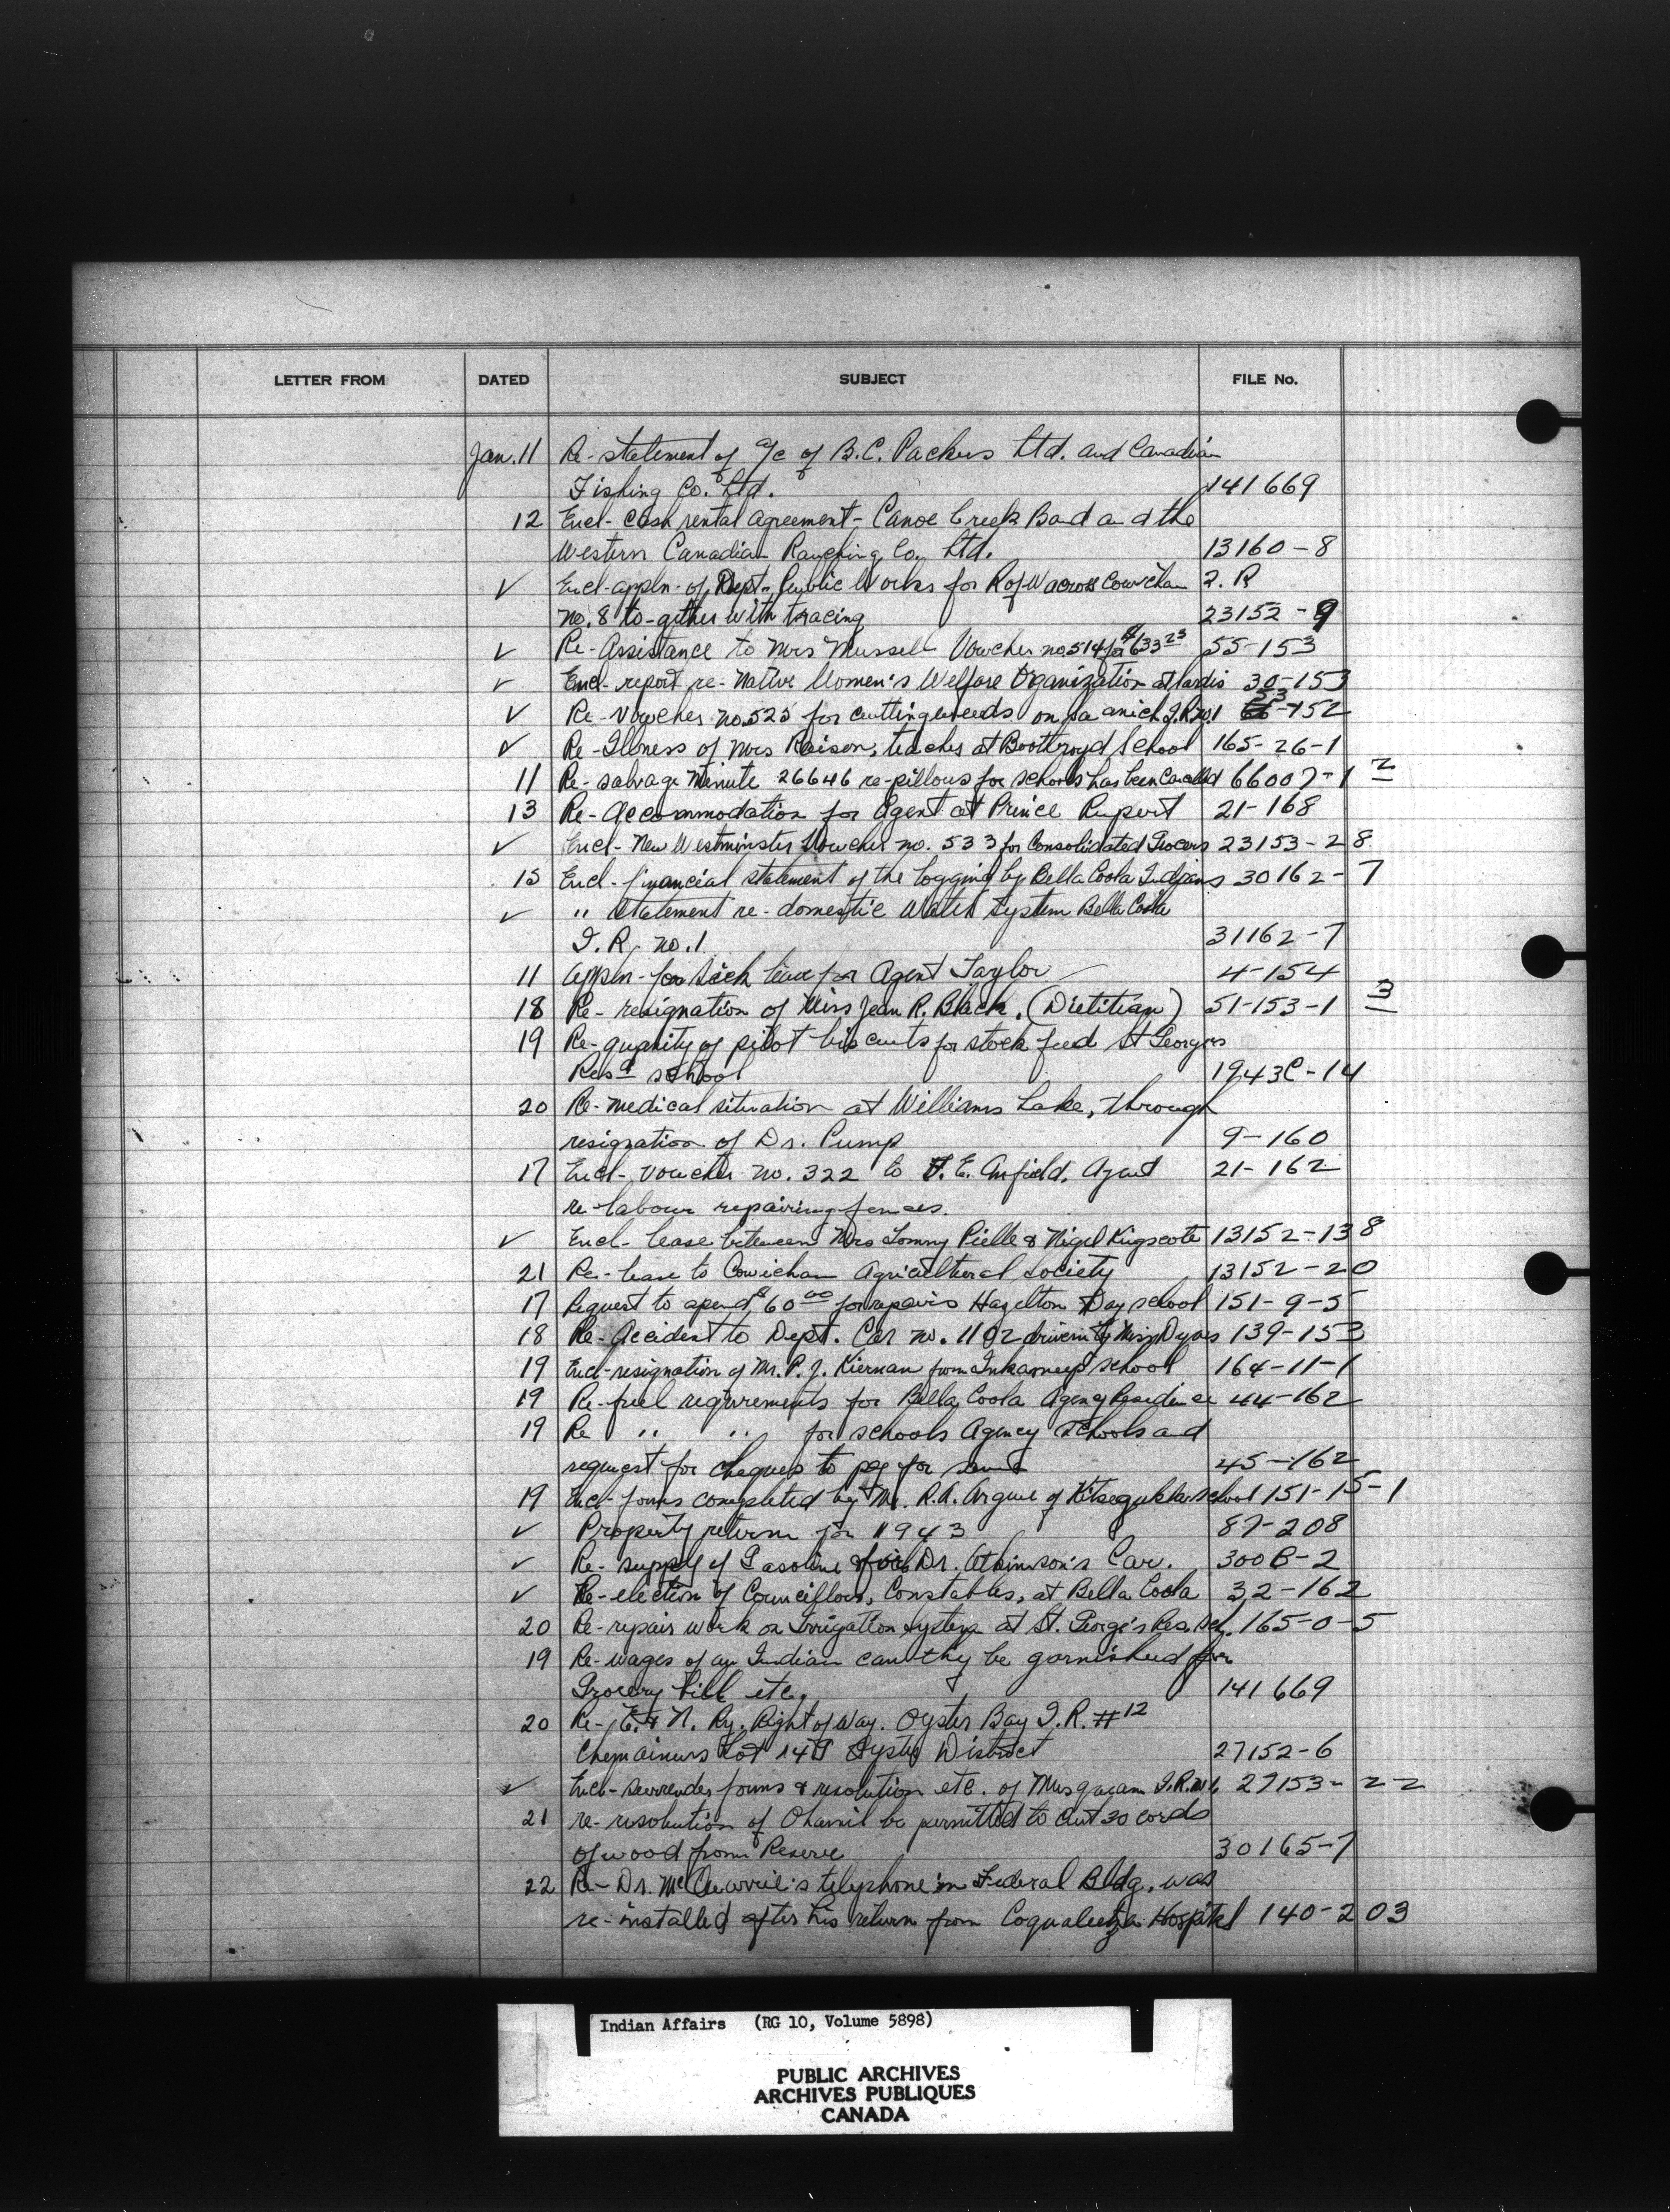 LETTER FROM DATED SUBJECT FILE No.
Jan. 11 Re-statement of a/c of B.C. Packers Ltd. and Canadian
Fishing Co. Ltd. 141669
12 Encl- cash rental agreement- Canoe Creek Band and the
Western Canadian Ranching Co. Ltd. 13160-8
✓ Encl-appln-of Dept. Public Works for R of W across Cowichan 2. R
no. 8 to-gether with tracing 23152-9
✓ Re-Assistance to Mrs Mussell Voucher no 514 for $633 23 55-153
✓ Encl-report re-Native Women's Welfare Organization at Sardis 30-153
✓ Re-Voucher no. 525 for cutting weeds on Saanich I.R. no. 1 53-152
✓ Re-Illness of Mrs Raison, teacher at Boothroyd School 165-26-1
11 Re-salvage Minute 26646 re-pillows for schools has been cancelled 66007-1 2
13 Re-Accommodation for Agent at Prince Rupert 21-168
✓ Encl-New Westminster Voucher no. 533 for Consolidated Grocers 23153-28
15 Encl-financial statement of the logging by Bella Coola Indians 30162-7
✓ " statement re-domestic water system Bella Coola
I.R. no. 1 31162-7
11 appln-for sick leave for Agent Taylor 4-154
18 Re-resignation of Miss Jean R. Black. (Dietitian) 51-153-1 3
19 Re-quantity of pilot biscuits for stock feed St Georges
Resd school 1943C-14
20 Re-medical situation at Williams Lake, through
resignation of Dr. Pump 9-160
17 Encl-Voucher no. 322 to F.E. Anfield, Agent 21-162
re-labour repairing fences.
✓ Encl-lease between Mrs Tommy Pielle & Nigel Kingscote 13152-138
21 Re-lease to Cowichan Agricultural Society 13152-20
17 Request to spend $60 00 for repairs Hazelton Day school 151-9-5
18 Re-Accident to Dept. Car no. 1102 driven by Miss Dyas 139-153
19 Encl-resignation of Mr. P.J. Kiernan from Inkameep school 164-11-1
19 Re-fuel requirements for Bella Coola Agency Residence 44-162
19 Re " " for schools Agency Schools and
request for cheques to pay for same 45-162
19 Encl-forms completed by Mr. R.A. Argue of Kitsegukla school 151-15-1
✓ Property return for 1943 87-208
✓ Re-supply of Gasoline for Dr. Atkinson's Car. 300B-2
✓ Re-election of Councillors, Constables, at Bella Coola 32-162
20 Re-repair work on Irrigation system at St. George's Res. Sch. 165-0-5
19 Re-wages of an Indian can they be garnished for
Grocery bill etc. 141669
20 Re-E. & N. Ry. Right of Way. Oyster Bay I.R. #12
Chemainus Lot 14 Oyster District 27152-6
✓ Encl-surrender forms & resolution etc. of Musqueam I.R. 27153-22
21 re-resolution of Ohamil be permitted to cut 30 cords
of wood from Reserve 30165-7
22 Re-Dr. telephone in Federal Bldg. was
re-installed after his return from Coqualeetza Hospital 140-203
Indian Affairs (RG 10, Volume 5898)
PUBLIC ARCHIVES
ARCHIVES PUBLIQUES
CANADA